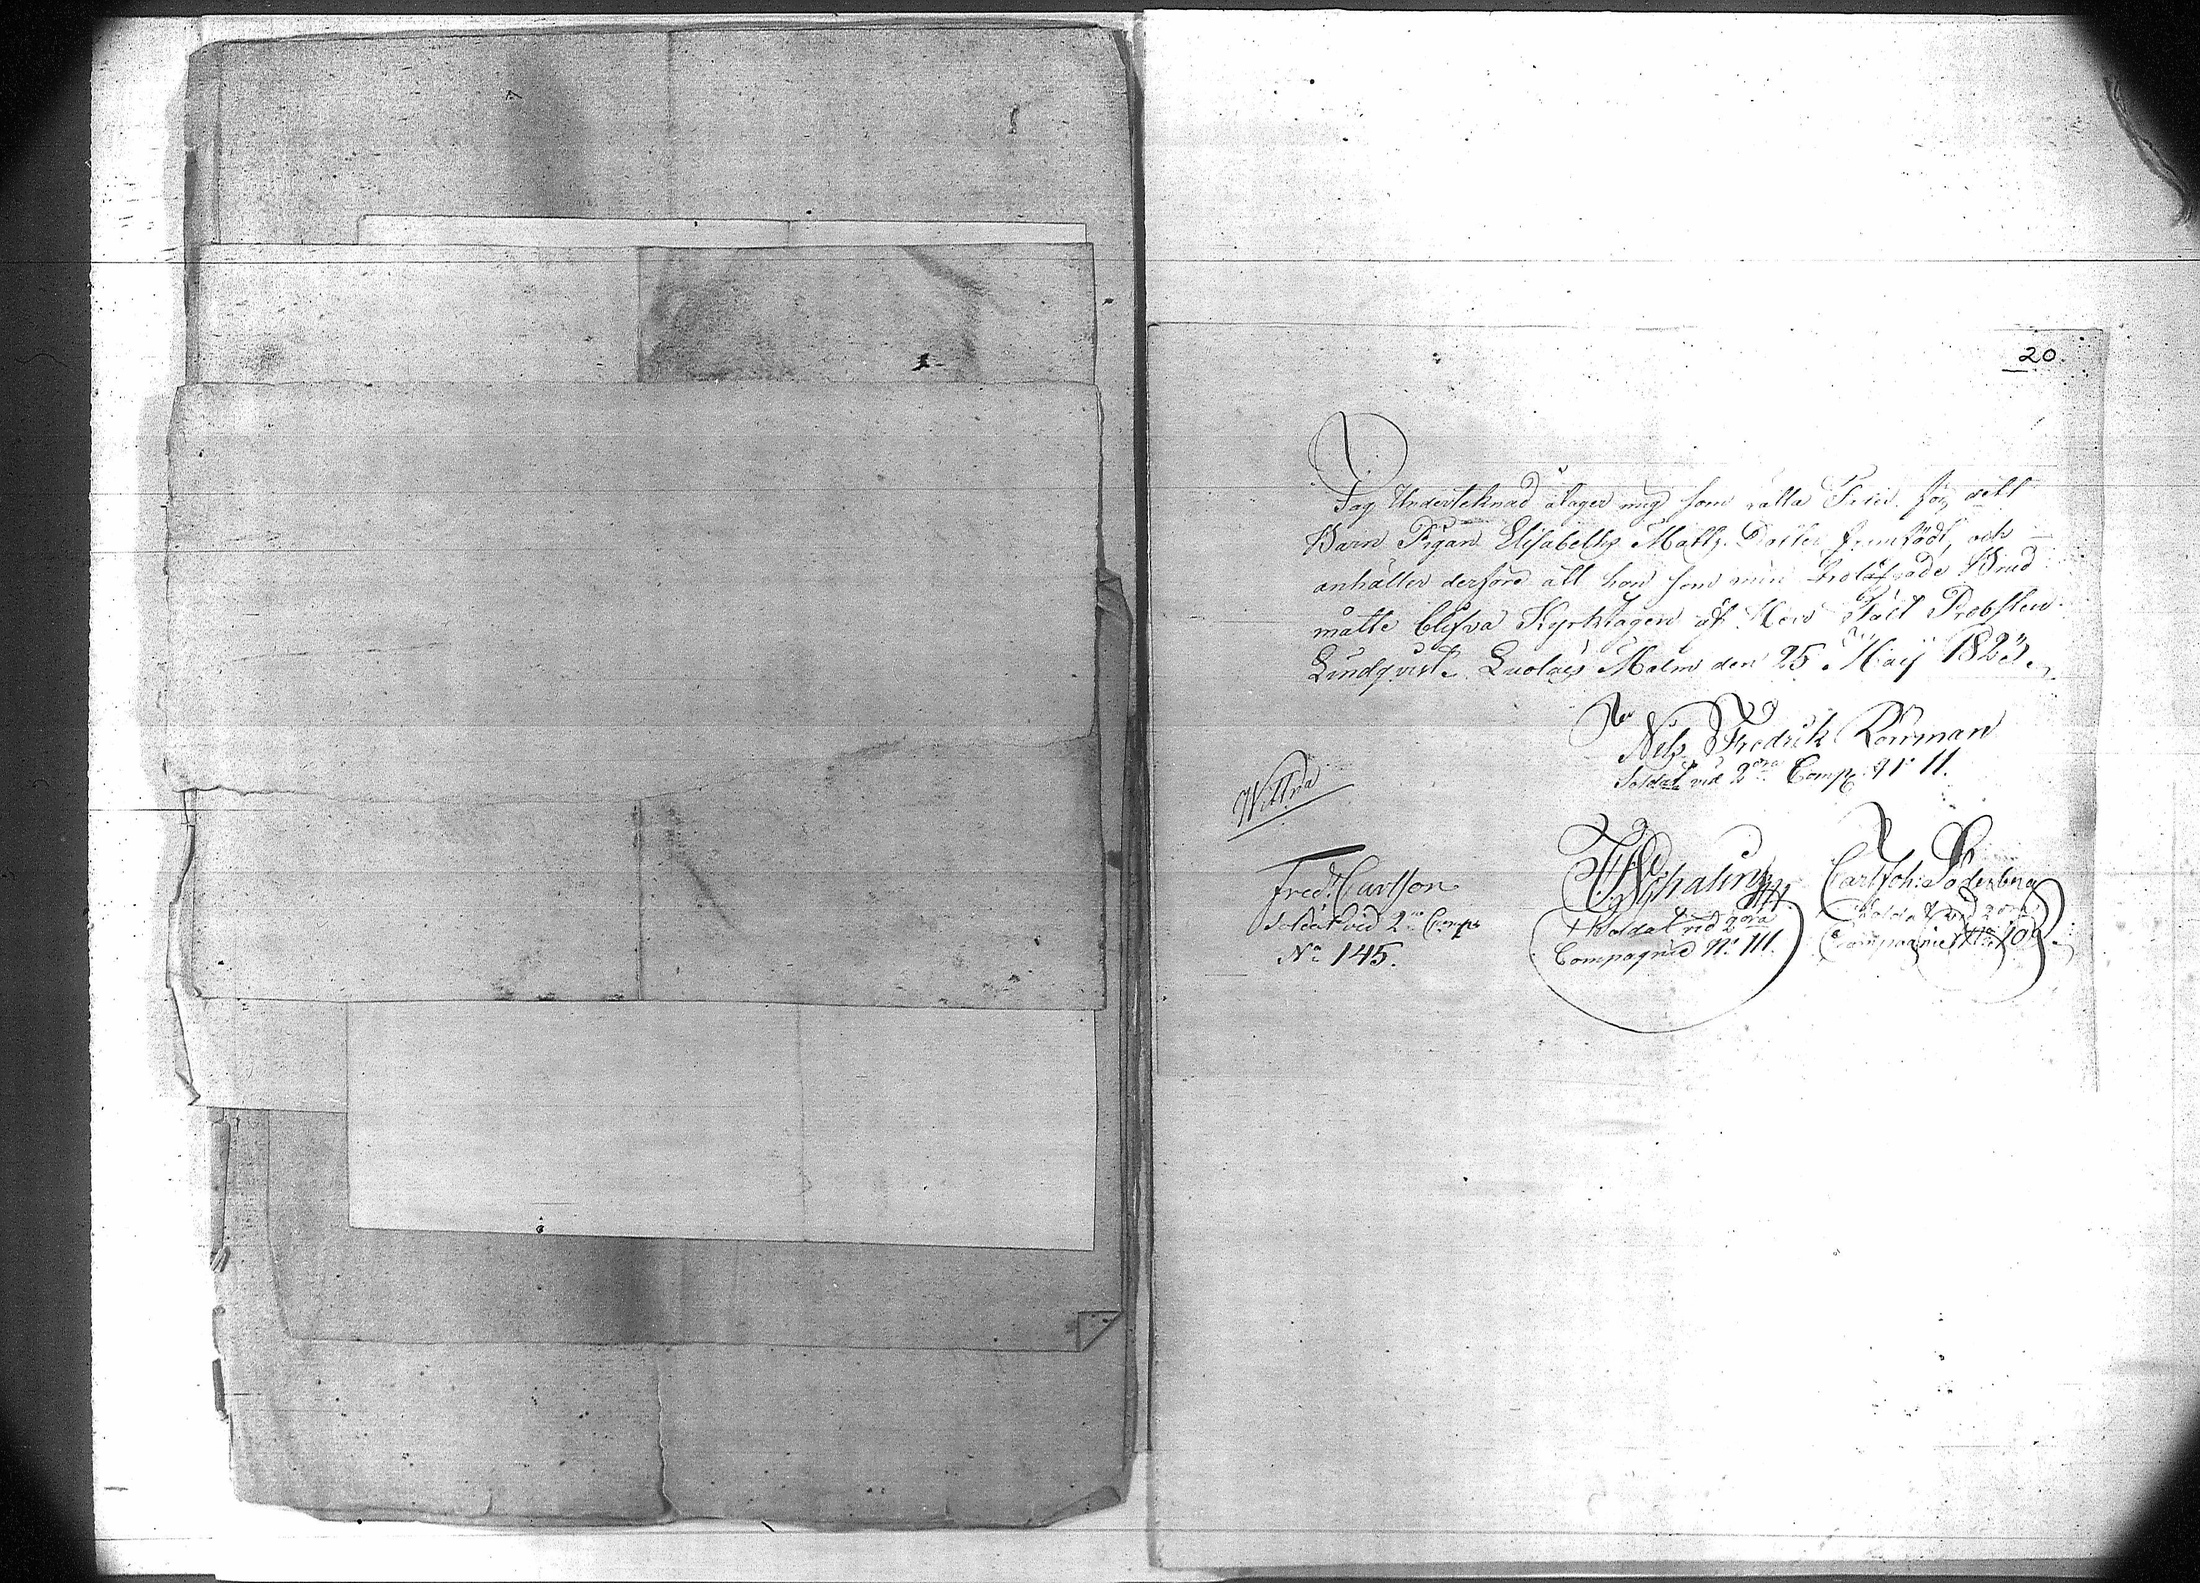 20.
Jag Underteknad åtager mig som rätta Fader för dett
Barn Pigan Elisabeths Matts Dotter framfödt, och
anhåller derföre att hon som min Trolåfvade Brud
måtte blifva Kyrktagen af Herr Fält Probsten
Lindqvist. Lvolais Malm den 25 Maij 1823.
Nils Fredrik Rourman
Soldat vid 2dra Comp. Nr 11.
Wittna
Fredr Carlson
Soldat vid 2ra Comp
No 145.
Soldat vid 2dra
Compagnie Nr. 111.
Carl Joh: Söderberg
Soldat vid 2dra
Compagnie No 109.